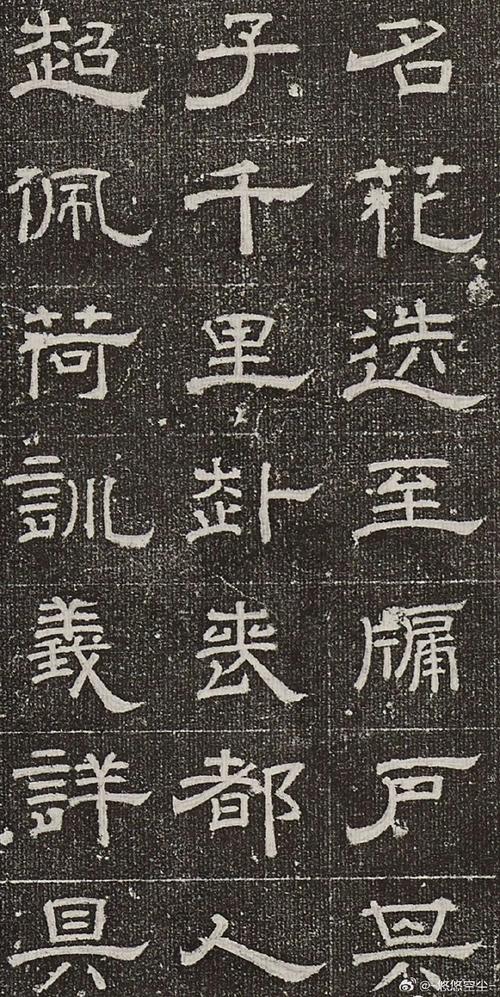 名花迭至牖户其
子千里赴喪都人
超佩荷訓義詳具
@-悠悠空尘-